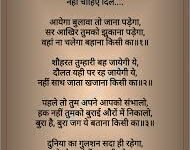 नहीं चाहिए दिल....
आयेगा बुलावा तो जाना पड़ेगा,
सर आखिर तुमको झुकाना पड़ेगा,
वहां ना चलेगा बहाना किसी का॥१॥
शौहरत तुम्हारी बह जायेगी ये,
दौलत यही पर रह जायेगी ये,
नहीं साथ जाता खजाना किसी का॥२॥
पहले तो तुम अपने आपको संभालो,
हक नहीं तुमको बुराई औरों में निकालो,
बुरा है, बुरा जग ये बताना किसी का॥३॥
दुनिया का गुलशन सदा ही रहेगा,